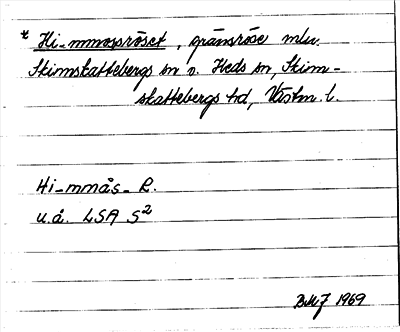 * Hi-mmosröset, gränsröse mln.
Skinnskattebergs sn o. Heds sn, Skinn-
skattebergs hd, Västm. l.
Hi-mmås- R.
u.å. LSA S²
1969